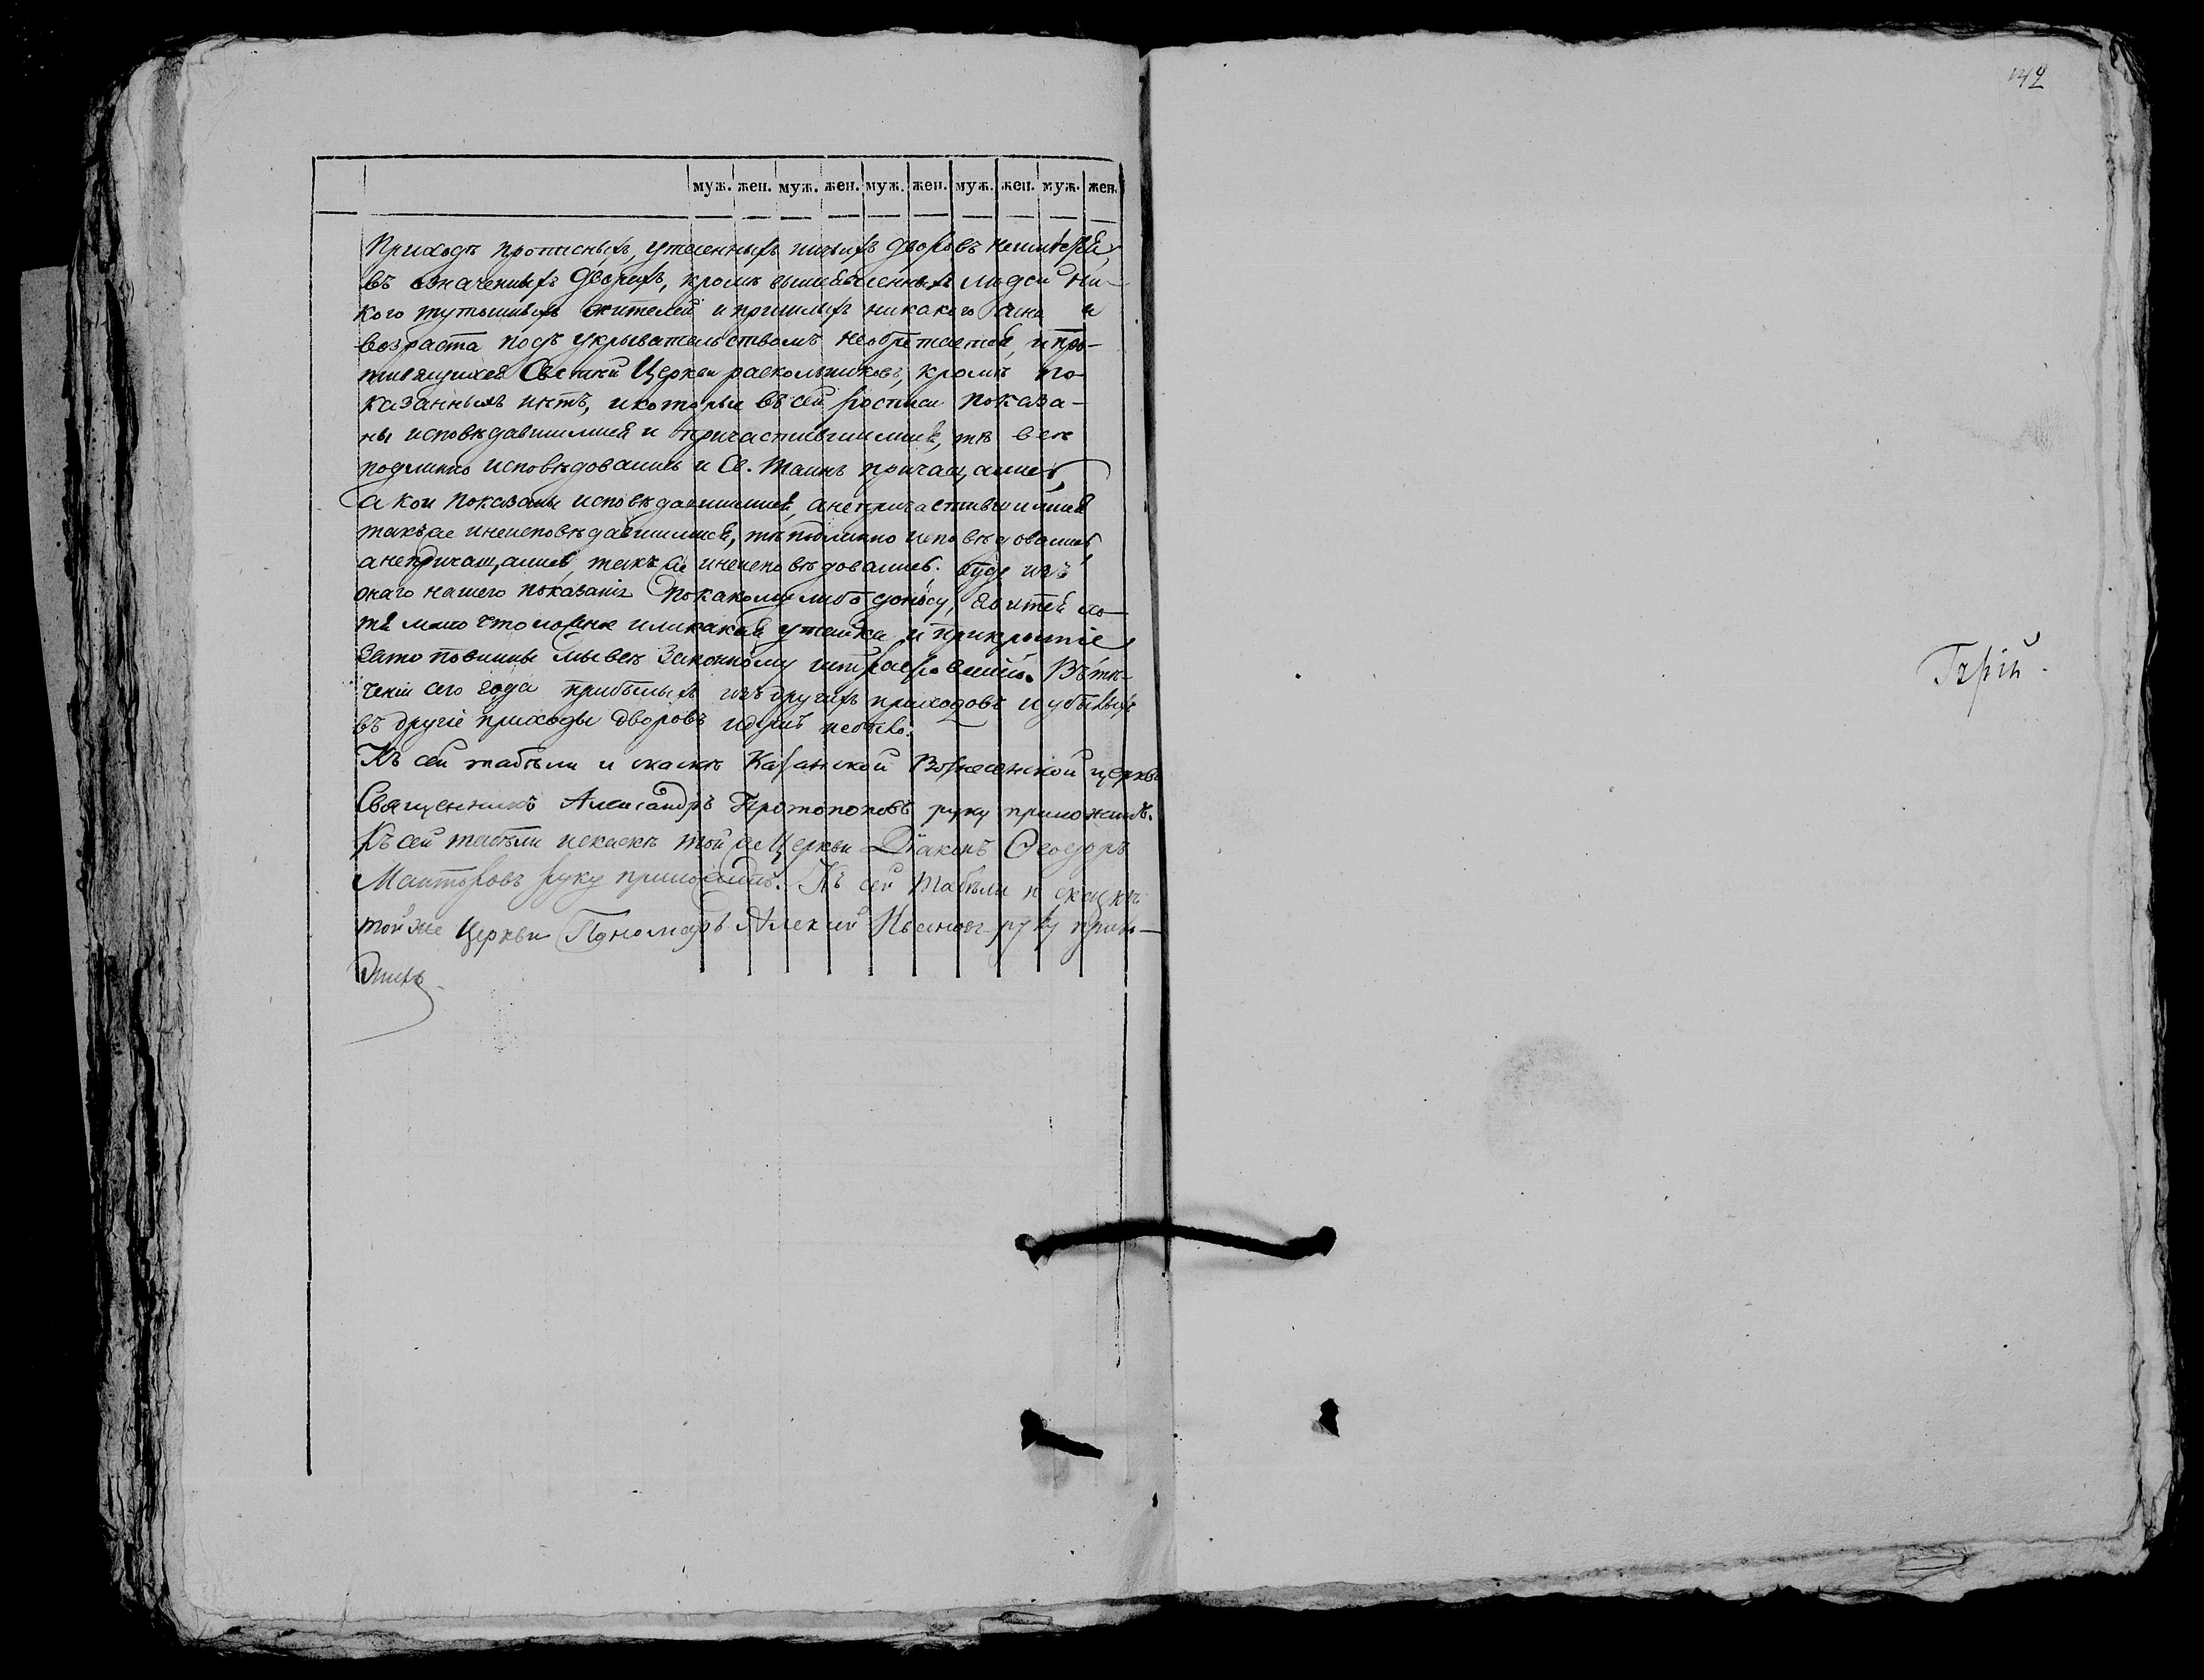 142
муж. жен. муж. жен. муж. жен. муж. жен. муж. жен.
Приходѣ прописныхъ, утаенныхъ ничьихъ дворовъ неимѣется,
въ означенныхъ дворахъ, кромѣ вышеписенныхъ людей ни-
кого тутошныхъ жителей и пришлыхъ никакого чина и
возраста подъ укрывательствомъ необрѣтается, и про-
тивящихся Святѣй Церкви раскольниковъ, кромѣ по-
казанныхъ нѣтъ, и которые въ сей росписи показа-
ны исповѣдавшимися и причастившимися, тѣ всѣ
подлинно исповѣдовались и Св. Таинъ причащались,
а кои показаны исповѣдавшимися, а непричастившимися
такъже и неисповѣдавшимися, тѣ подлинно исповѣдовались,
а непричащались, такъ же и неисповѣдовались. буде изъ
онаго нашего показанія по какому либо доносу, явится хо-
тя мало что ложное или какая утайка и прикрытіе
за то повинны мы всѣ законному штрафованію. Въ тѣ-
ченіи сего года прибылыхъ изъ другихъ приходовъ и убылыхъ
въ другіе приходы дворовъ и душъ небыло.
Къ сей табѣли и скаскѣ Казанской Вознесенской церкви
Священникъ Александръ Протопоповъ руку приложилъ.
Къ сей табѣли и скаскѣ той же Церкви Діаконъ Ѳеодоръ
руку приложилъ. Къ сей табѣли и скаскѣ
той же Церкви Пономарь Алексій Ивановъ руку прило-
жилъ